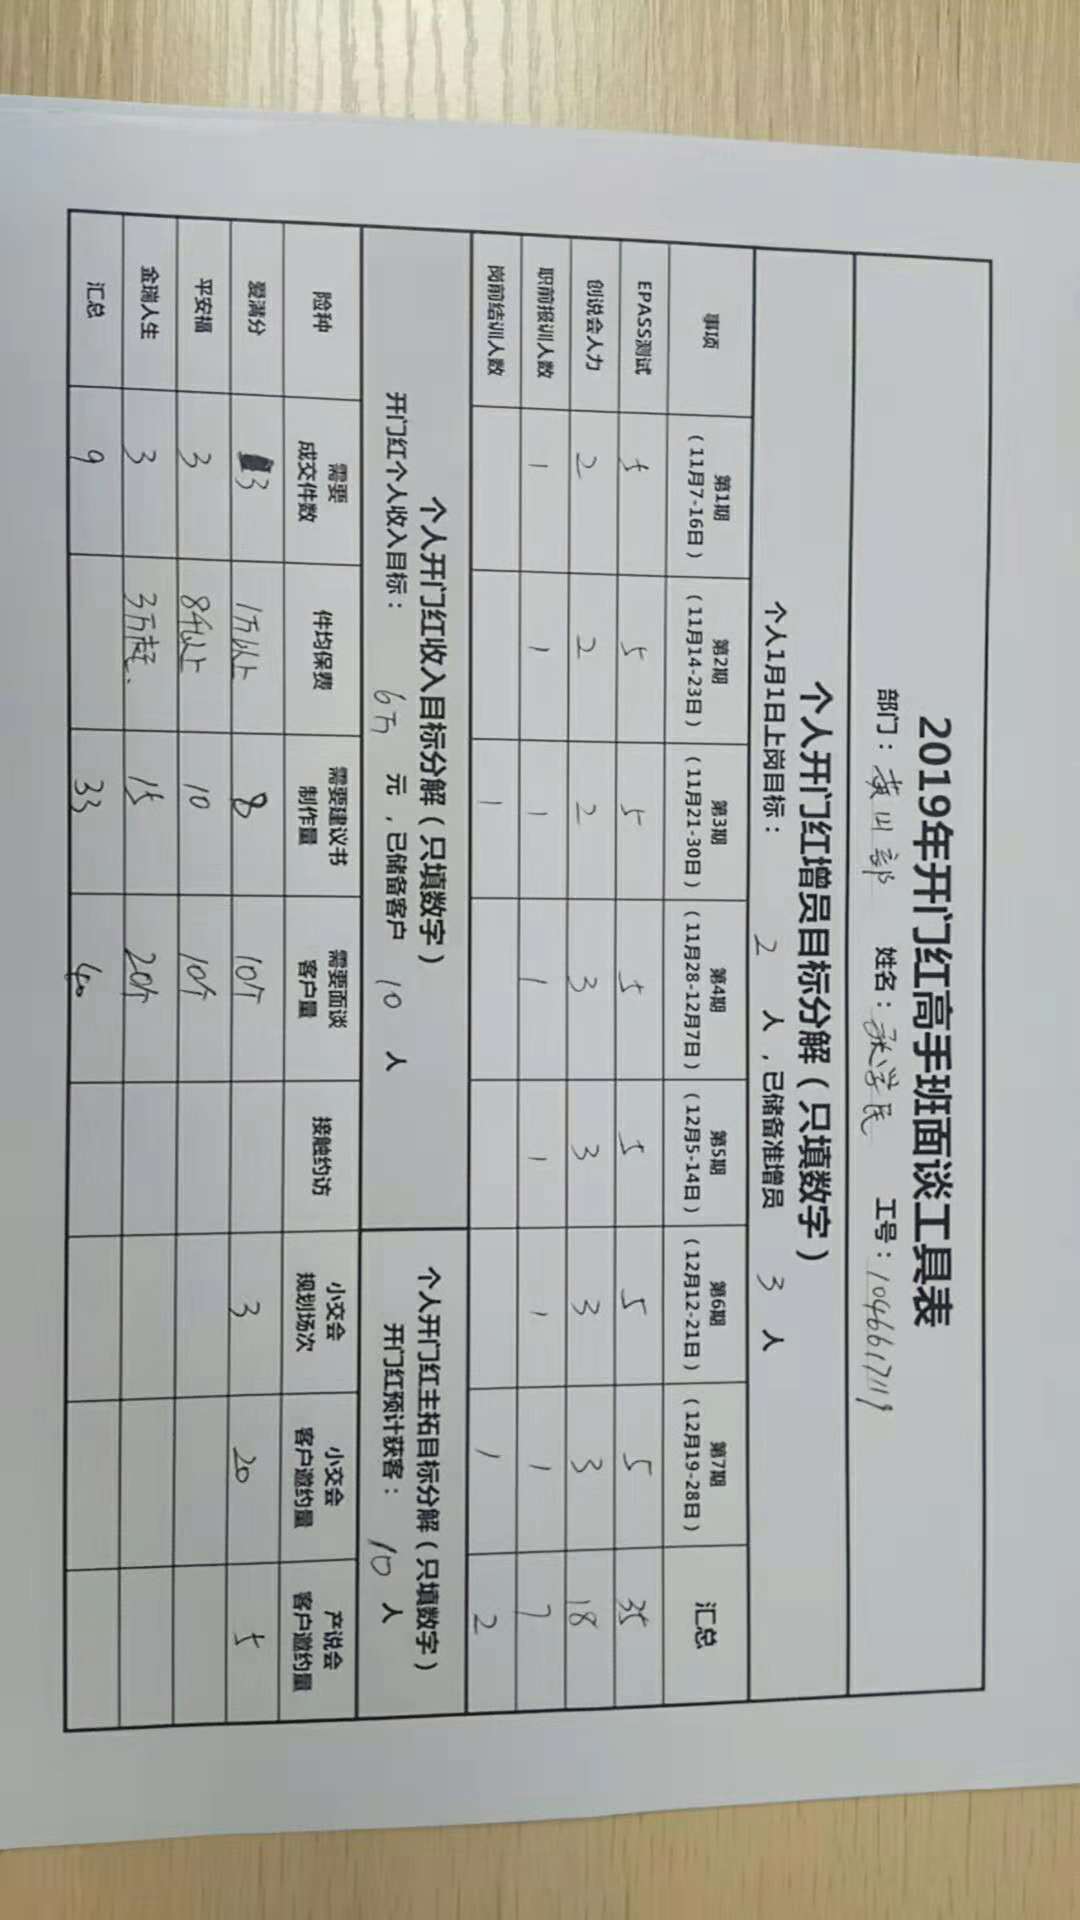 2019年开门红高手班面谈工具表
部门：黄山部 姓名：张学民 工号：1046617119
个人开门红增员目标分解（只填数字）
个人1月1日上岗目标： 2 人，已储备准增员 3 人
事项 第1期（11月7-16日） 第2期（11月14-23日） 第3期（11月21-30日） 第4期（11月28-12月7日） 第5期（12月5-14日） 第6期（12月12-21日） 第7期（12月19-28日） 汇总
EPASS测试 5 5 5 5 5 5 5 35
创说会人力 2 2 2 3 3 3 3 18
职前报训人数 1 1 1 1 1 1 1 7
岗前结训人数 1 1 2
个人开门红收入目标分解（只填数字） 个人开门红主拓目标分解（只填数字）
开门红个人收入目标： 6万 元，已储备客户 10 人 开门红预计获客： 10 人
险种 需要成交件数 件均保费 需要建议书制作量 需要面谈客户量 接触约访 小交会规划场次 小交会客户邀约量 产说会客户邀约量
爱满分 3 1万以上 8 10个 3 20 5
平安福 3 8千以上 10 10个
金瑞人生 3 3万起. 15 20个
汇总 9 33 40